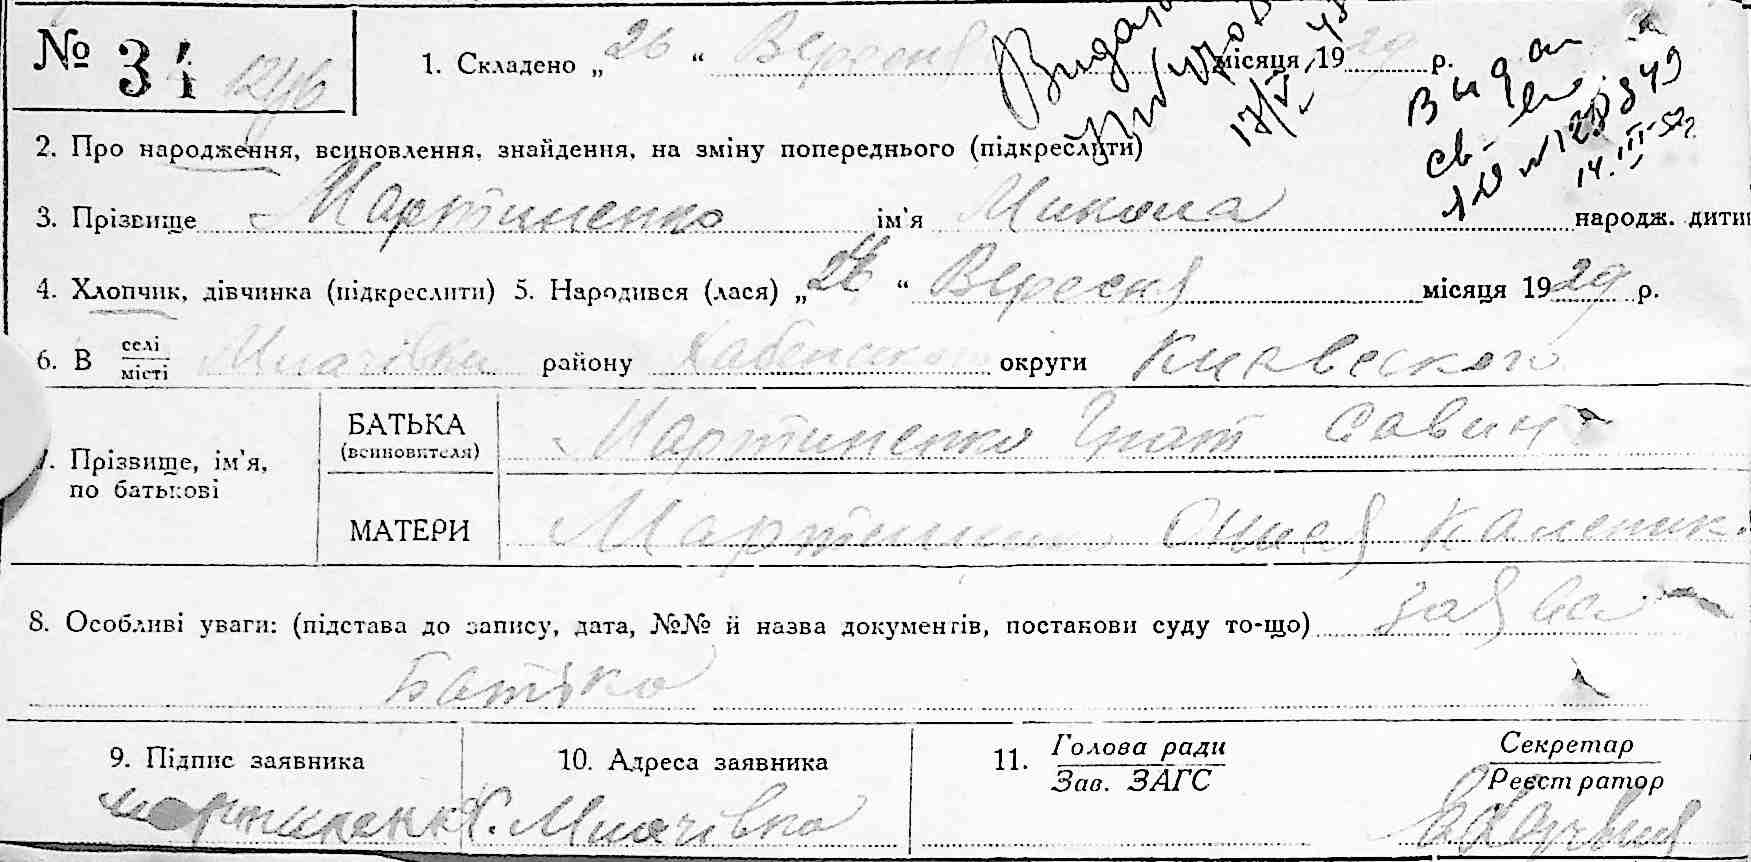 № 34
1. Складено „ 26 “ Вересня місяця 19 29 р.
2. Про народження, всиновлення, знайдення, на зміну попереднього (підкреслити)
3. Прізвище Мартиненко ім'я Микола народж. дити
4. Хлопчик, дівчинка (підкреслити) 5. Народився (лася) „ 26 “ Вересня місяця 19 29 р.
6. В селі/місті Мlachівки району Хабенського округи Киевского
7. Прізвище, ім'я, по батькові
БАТЬКА (всиновителя) Мартиненко Гнат Савин
МАТЕРИ Мартиненко Каленик.
8. Особливі уваги: (підстава до запису, дата, №№ й назва документів, постанови суду то-що) заява
Батько
9. Підпис заявника 10. Адреса заявника 11. Голова ради / Зав. ЗАГС Секретар / Реєстратор
Мартиненко
Видано
17/V
Видан
св-во
14.III-52г